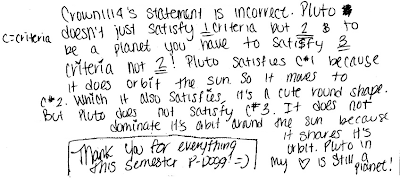 Crown1114's statement is incorrect. Pluto
c=criteria doesn't just satisfy 1 criteria but 2 & to
be a planet you have to satisfy 3
criteria not 2! Pluto satisfies c#1 because
it does orbit the sun. So it moves to
c#2. Which it also satisfies, it's a cute round shape.
But Pluto does not satisfy c#3. It does not
dominate it's orbit around the sun because
it shares it's
orbit. Pluto in
my ♡ is still a
planet!
Thank you for everything
this semester P-Dogg! =)